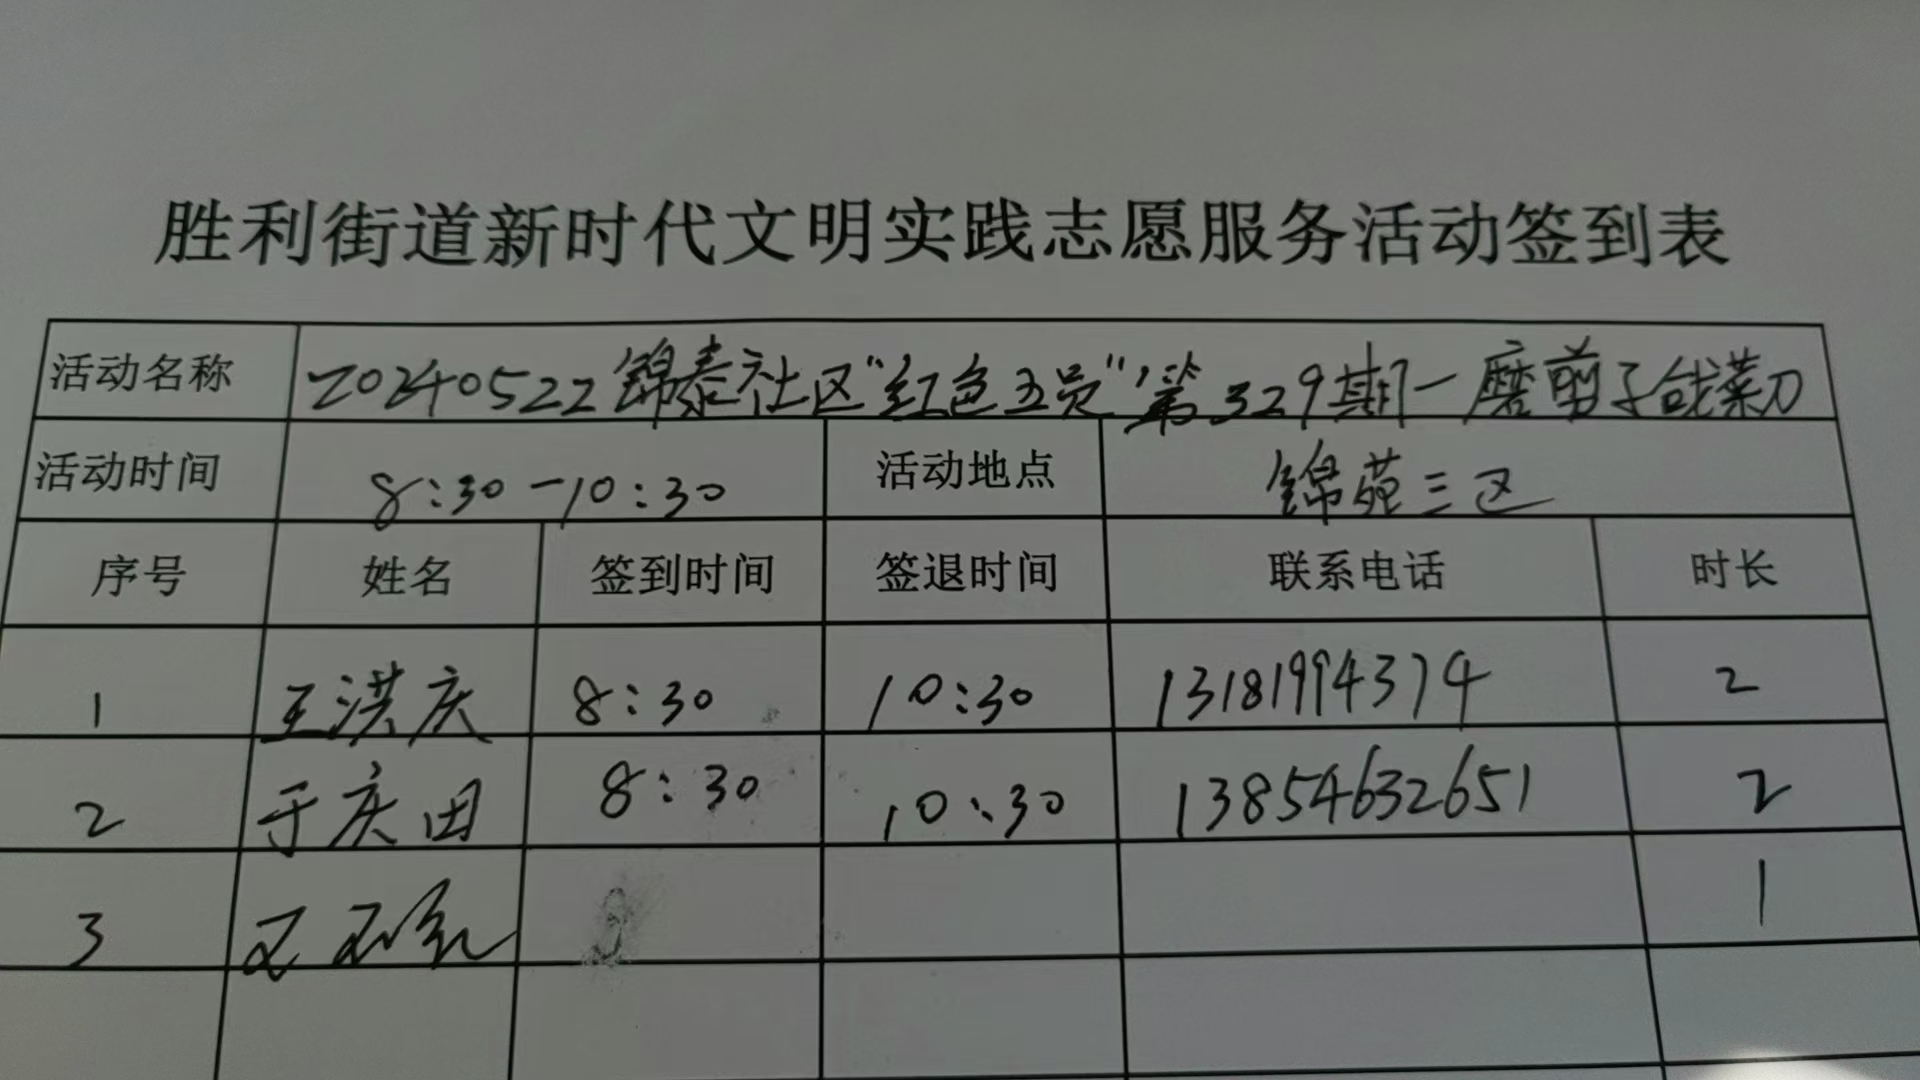 胜利街道新时代文明实践志愿服务活动签到表
活动名称 20240522锦泰社区"红色五员"第329期一磨剪子戗菜刀
活动时间 8:30-10:30 活动地点 锦苑三区
序号 姓名 签到时间 签退时间 联系电话 时长
1 王洪庆 8:30 10:30 13181994374 2
2 于庆田 8:30 10:30 13854632651 2
3 1